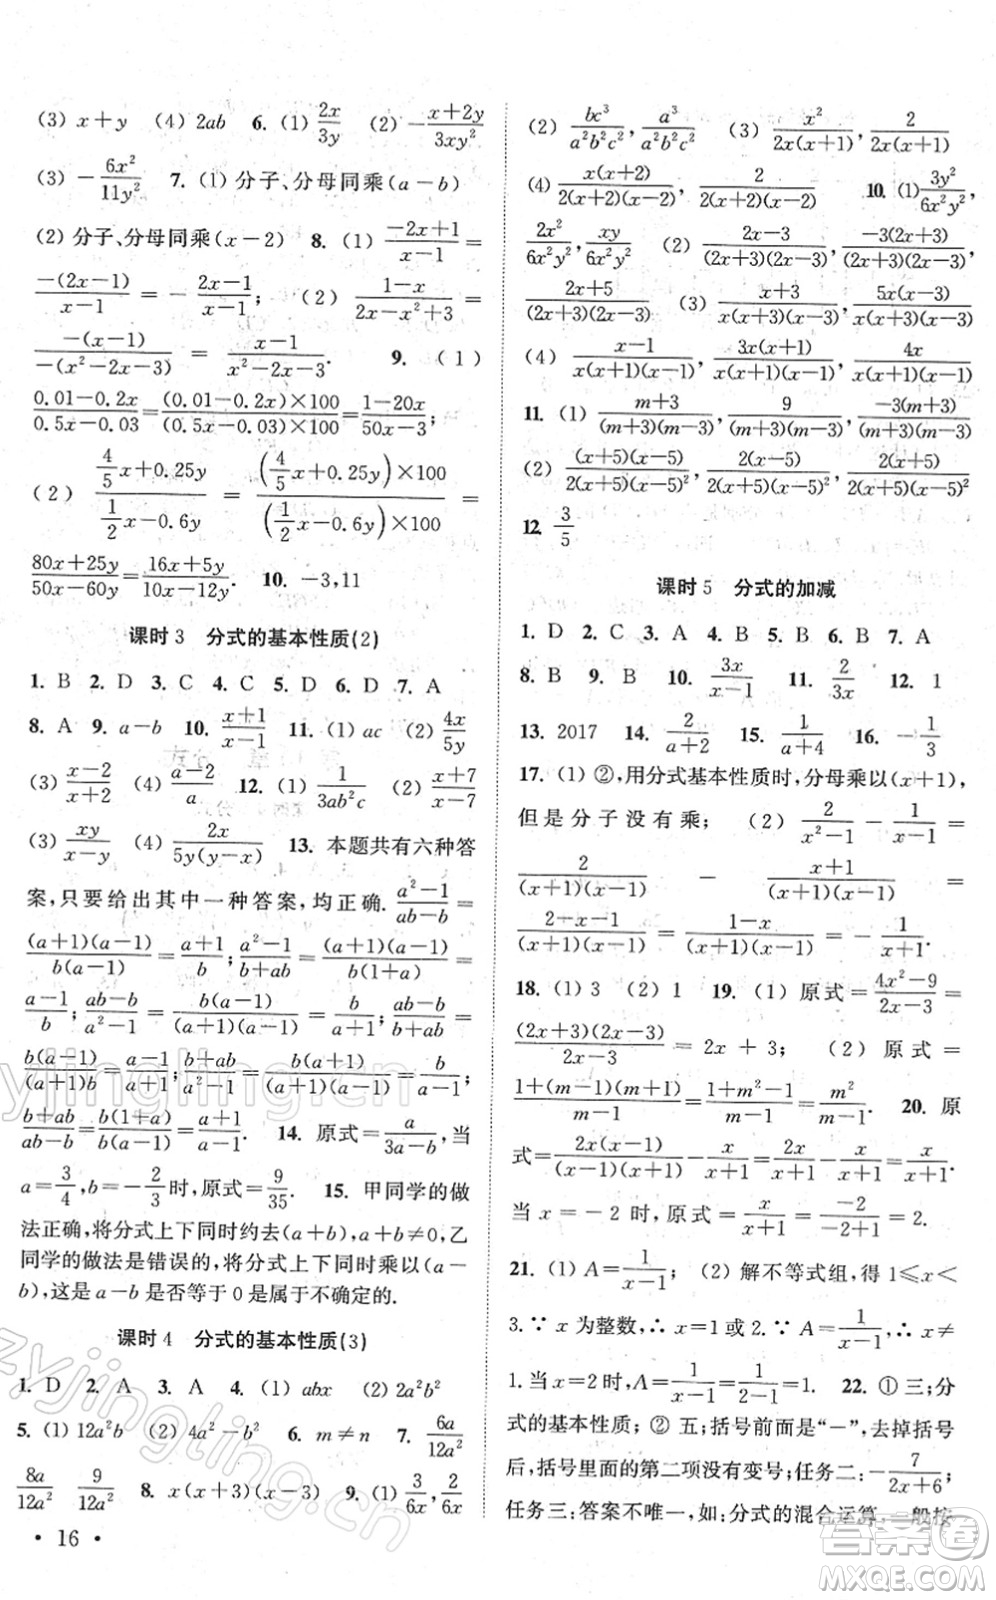 (3) x+y  (4) 2ab  6. (1) 2x/3y  (2) -(x+2y)/(3xy²)
(3) -6x²/11y²  7. (1) 分子、分母同乘(a-b)
(2) 分子、分母同乘(x-2)  8. (1) (-2x+1)/(x-1)=
-(2x-1)/(x-1)=-(2x-1)/(x-1);  (2) (1-x)/(2x-x²+3)=
-(x-1)/-(x²-2x-3)=(x-1)/(x²-2x-3).  9. (1)
(0.01-0.2x)/(0.5x-0.03)=((0.01-0.2x)×100)/((0.5x-0.03)×100)=(1-20x)/(50x-3);
(2) (4/5x+0.25y)/(1/2x-0.6y)=((4/5x+0.25y)×100)/((1/2x-0.6y)×100)=
(80x+25y)/(50x-60y)=(16x+5y)/(10x-12y).  10. -3,11
课时3 分式的基本性质(2)
1. B  2. D  3. C  4. C  5. D  6. D  7. A
8. A  9. a-b  10. (x+1)/(x-1)  11. (1) ac  (2) 4x/5y
(3) (x-2)/(x+2)  (4) (a-2)/a  12. (1) 1/(3ab²c)  (2) (x+7)/(x-7)
(3) xy/(x-y)  (4) 2x/(5y(y-x))  13. 本题共有六种答
案,只要给出其中一种答案,均正确. (a²-1)/(ab-b)=
((a+1)(a-1))/(b(a-1))=(a+1)/b; (a²-1)/(b+ab)=((a+1)(a-1))/(b(1+a))=
(a-1)/b; (ab-b)/(a²-1)=(b(a-1))/((a+1)(a-1))=b/(a+1); (ab-b)/(b+ab)=
(b(a-1))/((a+1)b)=(a-1)/(a+1); (b+ab)/(a²-1)=(b(a+1))/((a+1)(a-1))=b/(a-1);
(b+ab)/(ab-b)=(b(1+a))/(b(a-1))=(a+1)/(a-1).  14. 原式=a/(3a-b),当
a=3/4,b=-2/3时,原式=9/35.  15. 甲同学的做
法正确,将分式上下同时约去(a+b),a+b≠0,乙
同学的做法是错误的,将分式上下同时乘以(a-
b),这是a-b是否等于0是属于不确定的.
课时4 分式的基本性质(3)
1. D  2. A  3. A  4. (1) abx  (2) 2a²b²
5. (1) 12a²b  (2) 4a²-b²  6. m≠n  7. 6a/12a²
8a/12a²  9/12a²  8. x(x+3)(x-3)  9. (1) 3/6x, 2/6x
• 16 •
(2) bc³/(a²b²c²), a³/(a²b²c²)  (3) x²/(2x(x+1)), 2/(2x(x+1))
(4) (x(x+2))/(2(x+2)(x-2)), 2/(2(x+2)(x-2))  10. (1) 3y²/(6x²y²),
2x²/(6x²y²), xy/(6x²y²)  (2) (2x-3)/((2x+3)(2x-3)), (-3(2x+3))/((2x+3)(2x-3)),
(2x+5)/((2x+3)(2x-3))  (3) (x+3)/(x(x+3)(x-3)), (5x(x-3))/(x(x+3)(x-3))
(4) (x-1)/(x(x+1)(x-1)), (3x(x+1))/(x(x+1)(x-1)), 4x/(x(x+1)(x-1))
11. (1) (m+3)/((m+3)(m-3)), 9/((m+3)(m-3)), (-3(m+3))/((m+3)(m-3))
(2) ((x+5)(x-5))/(2(x+5)(x-5)²), (2(x-5))/(2(x+5)(x-5)²), (2(x+5))/(2(x+5)(x-5)²)
12. 3/5
课时5 分式的加减
1. D  2. C  3. A  4. B  5. B  6. B  7. A
8. B  9. B  10. 3x/(x-1)  11. 2/3x  12. 1
13. 2017  14. 2/(a+2)  15. 1/(a+4)  16. -1/3
17. (1) ②,用分式基本性质时,分母乘以(x+1),
但是分子没有乘;  (2) 2/(x²-1)-1/(x-1)=
2/((x+1)(x-1))-(x+1)/((x+1)(x-1))=
(2-x-1)/((x+1)(x-1))=(1-x)/((x+1)(x-1))=-1/(x+1).
18. (1) 3  (2) 1  19. (1) 原式=(4x²-9)/(2x-3)=
((2x+3)(2x-3))/(2x-3)=2x+3;  (2) 原式=
(1+(m-1)(m+1))/(m-1)=(1+m²-1)/(m-1)=m²/(m-1).  20. 原
式=(2x(x-1))/((x-1)(x+1))-x/(x+1)=2x/(x+1)-x/(x+1)=x/(x+1).
当x=-2时,原式=x/(x+1)=-2/(-2+1)=2.
21. (1) A=1/(x-1);  (2) 解不等式组,得1≤x<
3.∵x为整数,∴x=1或2.∵A=1/(x-1),∴x≠
1.当x=2时,A=1/(x-1)=1/(2-1)=1.  22. ① 三;分
式的基本性质;② 五;括号前面是“-”,去掉括号
后,括号里面的第二项没有变号;任务二:-7/(2x+6);
任务三:答案不唯一,如:分式的混合运算,一般按
zyjingling.cn
zyjingling.cn
答案圈
MXQE.COM